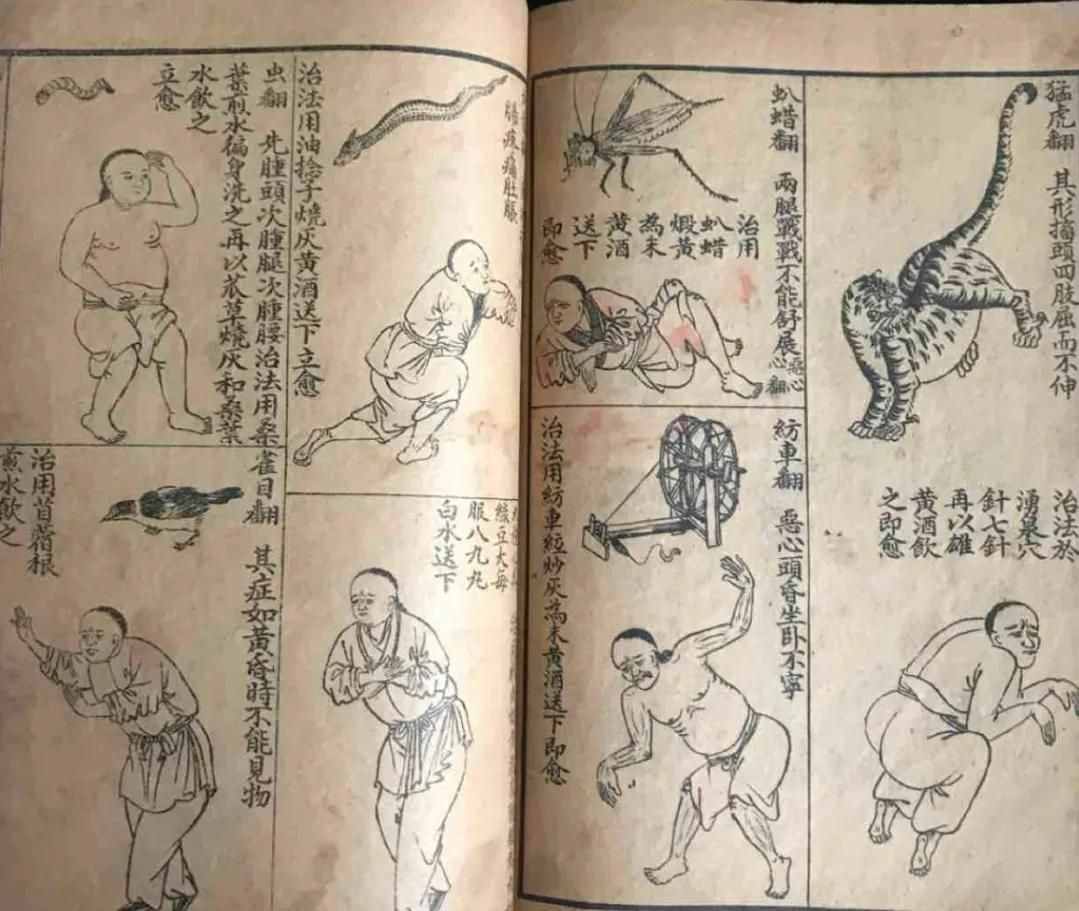 猛虎翻
其形摘頭四肢屈而不伸
治法於
湧墓穴
針七針
再以雄
黄酒飲
之即愈
虭蜡翻
兩腿戰戰不能舒展
惡心
心翻
治用
虭蜡
煅黄
為末
黄酒
送下
即愈
紡車翻
惡心頭昏坐卧不寧
治法用紡車經炒灰為末黄酒送下即愈
疼痛肚脹
治法用油捻子燒灰黄酒送下立愈
菉豆大每
服八九丸
白水送下
虫翻
先腫頭次腫腿次腫腰治法用桑
葉煎水偏身洗之再以衣草燒灰和桑葉
水飲之
立愈
雀目翻
其症如黄昏時不能見物
治用苜蓿根
煎水飲之